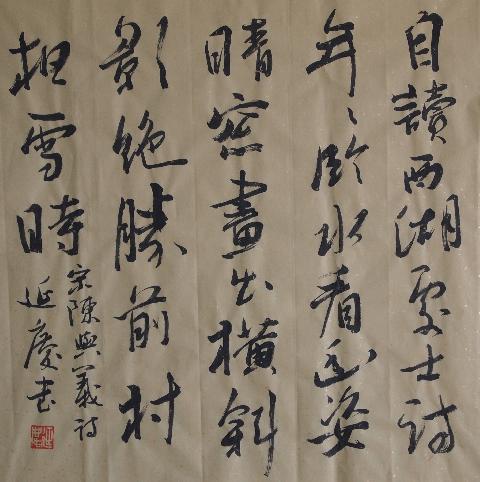 自讀西湖處士詩
年々臨水看幽姿
晴窓畫出橫斜
影絶勝前村
雪時
宋陳與義詩
延慶书